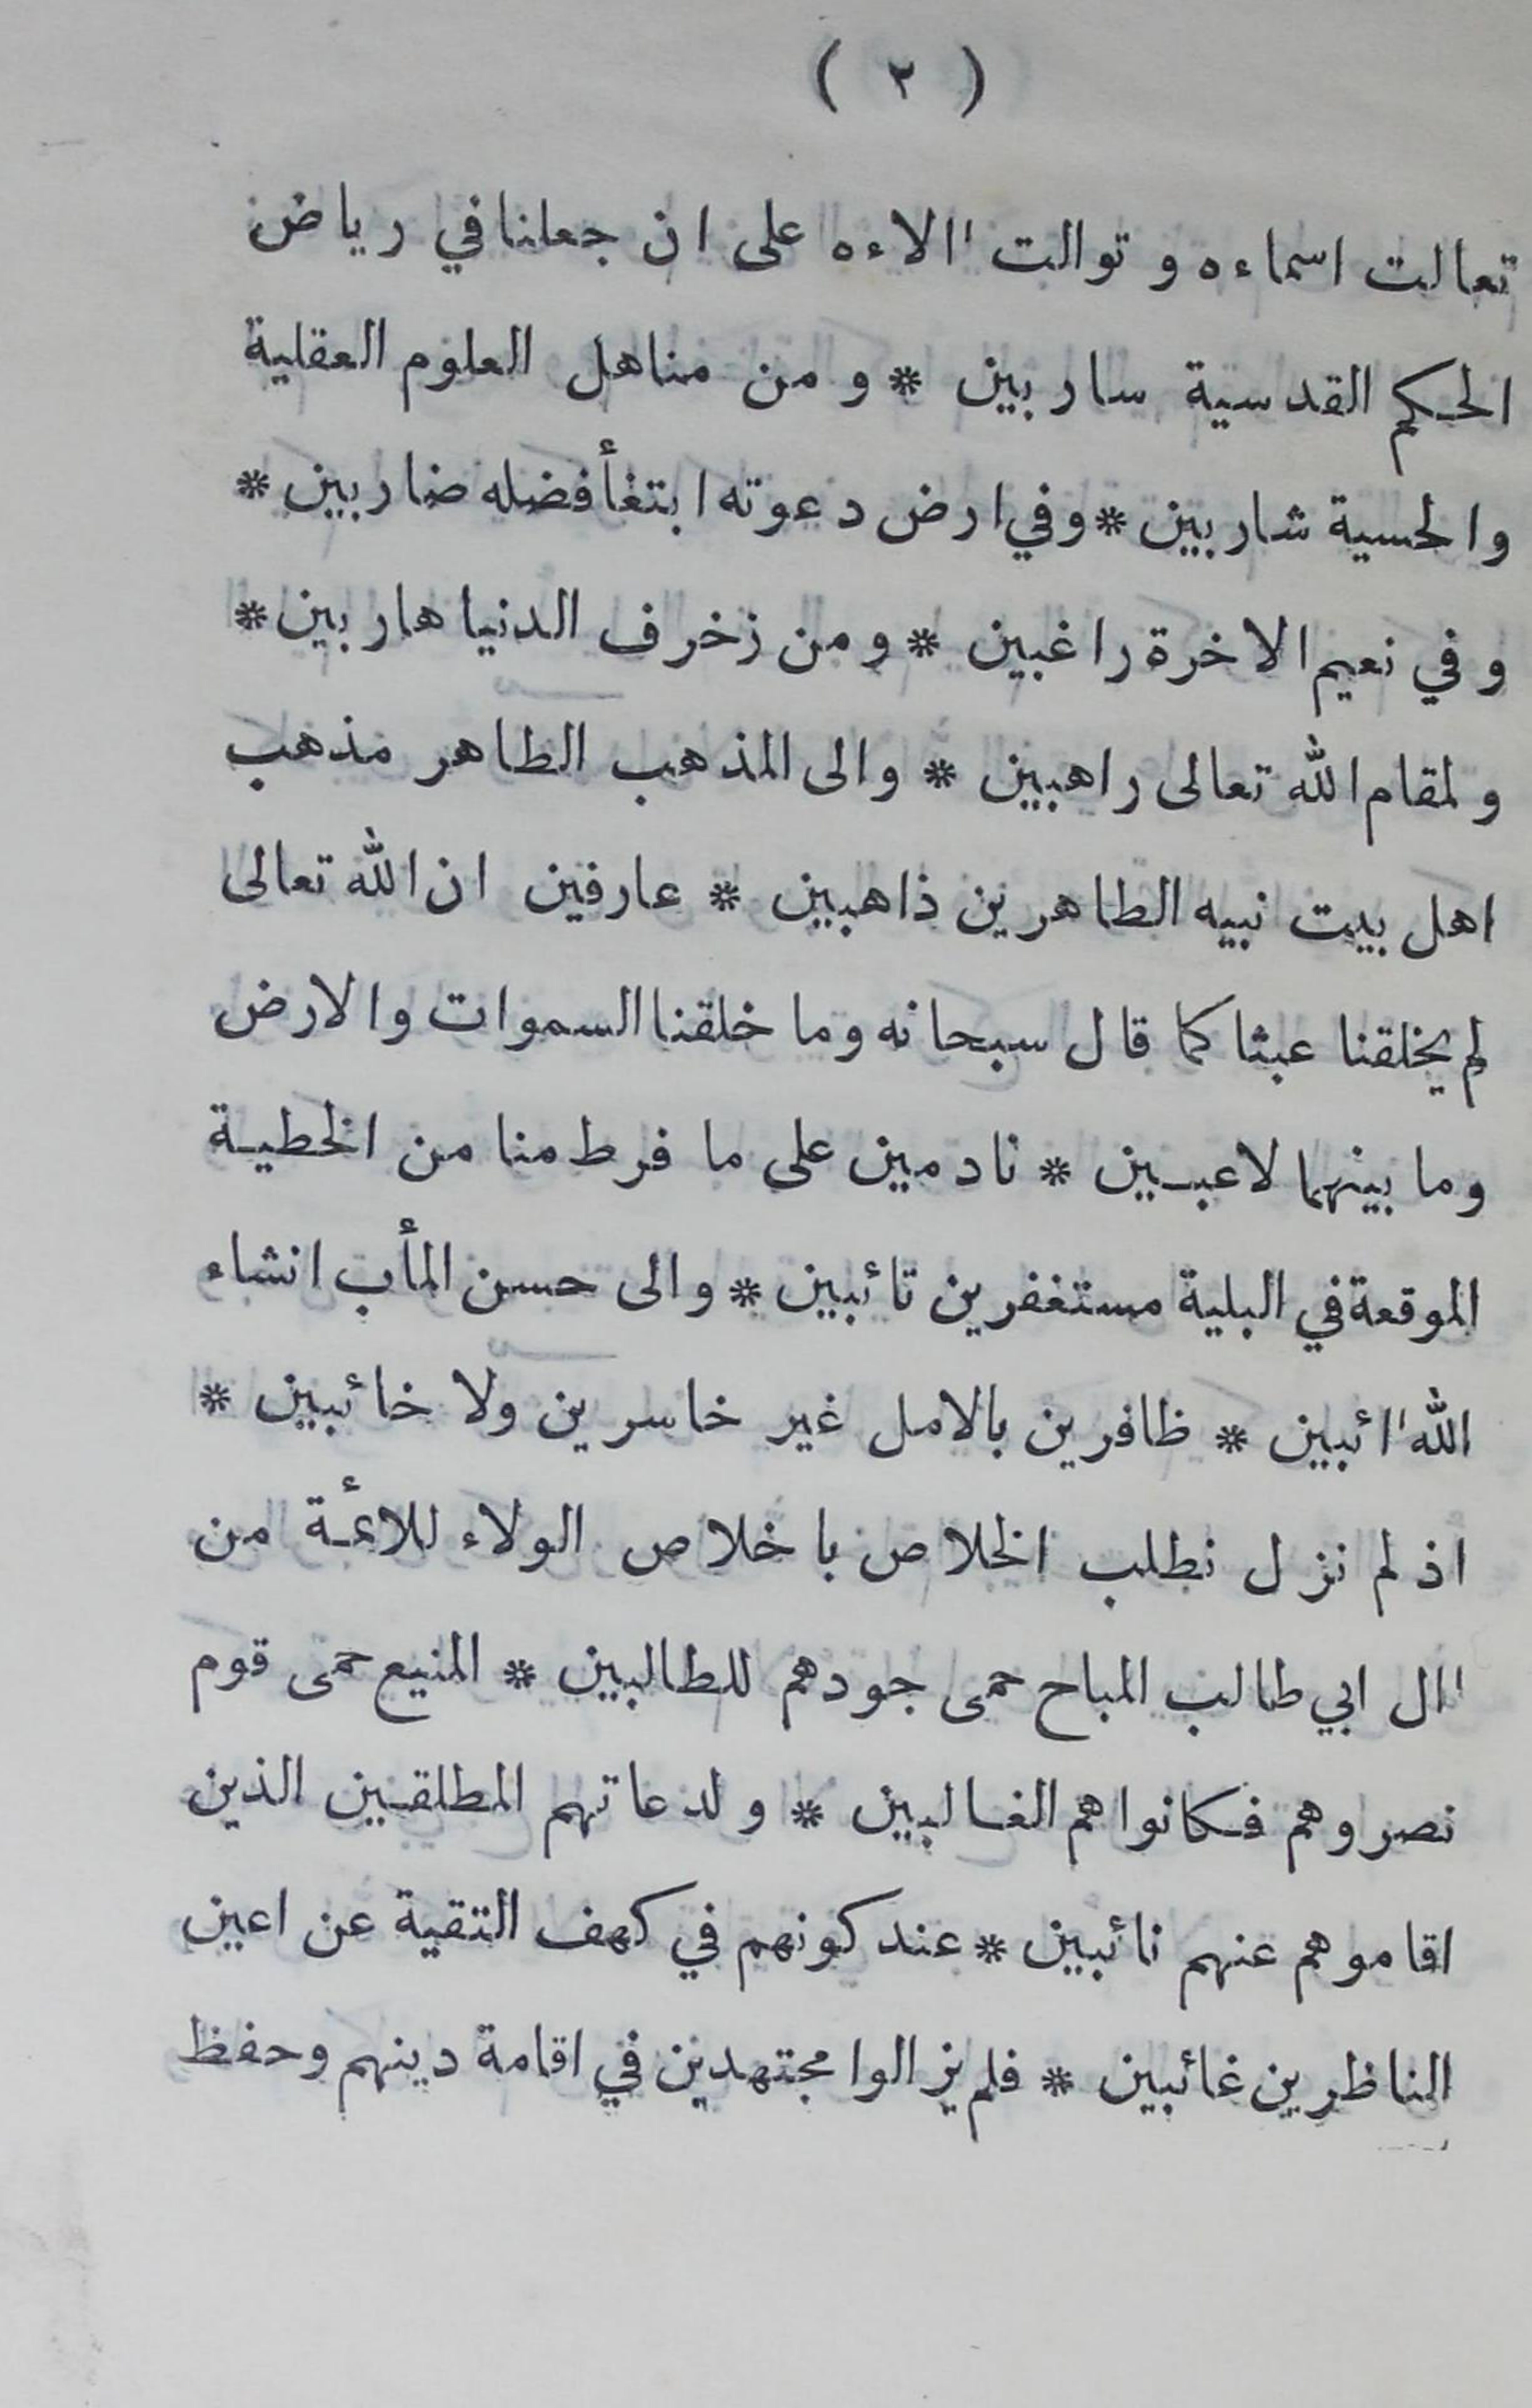 ( ٢ )
تعالت اسماءه و توالت اٰلاءه على ان جعلنا في رياض
الحكم القدسية ساربين * و من مناهل العلوم العقلية
والحسية شاربين * وفي ارض دعوته ابتغأ فضله ضاربين *
و في نعيم الاخرة راغبين * و من زخرف الدنيا هاربين *
ولمقام الله تعالى راهبين * والى المذهب الطاهر مذهب
اهل بيت نبيه الطاهرين ذاهبين * عارفين ان الله تعالى
لم يخلقنا عبثا كما قال سبحانه وما خلقنا السموات والارض
وما بينهما لاعبين * نادمين على ما فرط منا من الخطية
الموقعة في البلية مستغفرين تائبين * والى حسن المأب انشاء
الله اٰئبين * ظافرين بالامل غير خاسرين ولا خائبين *
اذ لم نزل نطلب الخلاص باخلاص الولاء للائمة من
اٰل ابي طالب المباح حمى جودهم للطالبين * المنيع حمى قوم
نصروهم فكانوا هم الغالبين * ولدعاتهم المطلقين الذين
اقاموهم عنهم نائبين * عند كونهم في كهف التقية عن اعين
الناظرين غائبين * فلم يزالوا مجتهدين في اقامة دينهم وحفظ